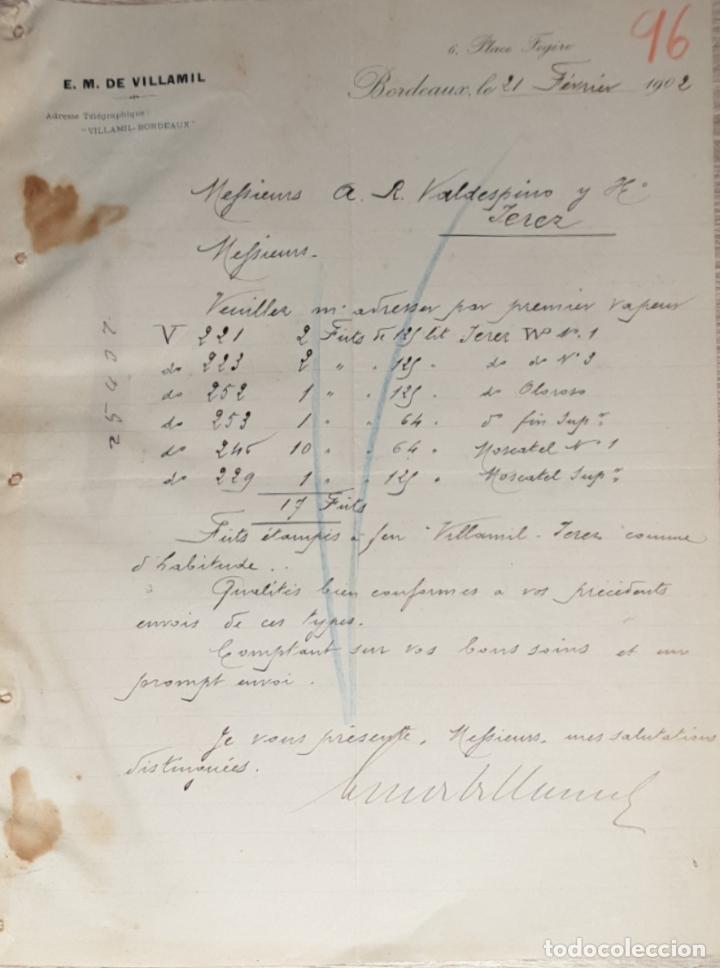 96
6, Place Fégère
E. M. DE VILLAMIL
Bordeaux, le 21 Février 1902
Adresse Télégraphique:
"VILLAMIL-BORDEAUX"
Messieurs A. R. Valdespino y Hº
Jerez
Messieurs.
Veuillez m'adresser par premier vapeur
V 221 2 Futs de 125 lit Jerez Wº Nº 1
do 223 2 " " 125 " do do Nº 3
do 252 1 " " 125 " do Oloroso
do 253 1 " " 64 " dº fin Supr
do 246 10 " " 64 " Moscatel Nº 1
do 229 1 " " 125 " Moscatel Supr
17 Futs
Futs étampés à feu "Villamil - Jerez" comme
d'habitude..
Qualités bien conformes à vos précédents
envois de ces types.
Comptant sur vos bons soins et un
prompt envoi.
Je vous présente, Messieurs, mes salutations
distinguées.
25402
todocoleccion